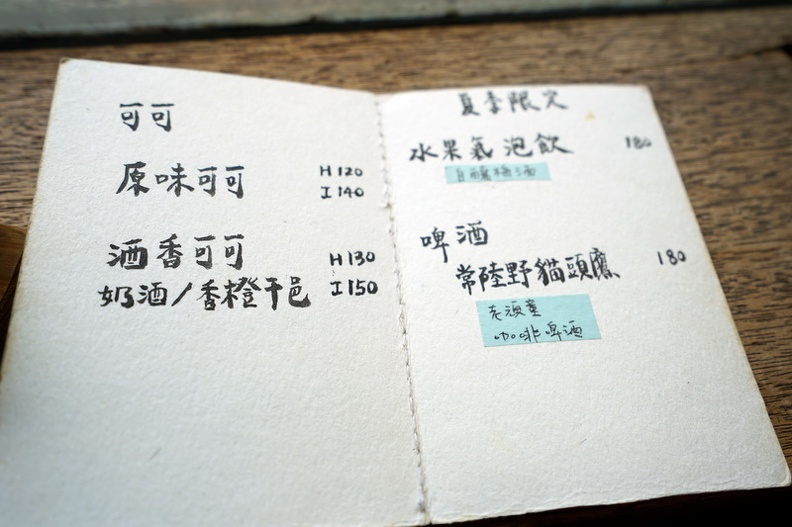 可可
原味可可
H 120
I 140
酒香可可
H 130
奶酒/香橙干邑
I 150
夏季限定
水果氣泡飲
180
自釀梅酒
啤酒
常陸野貓頭鷹
180
老頑童
咖啡啤酒